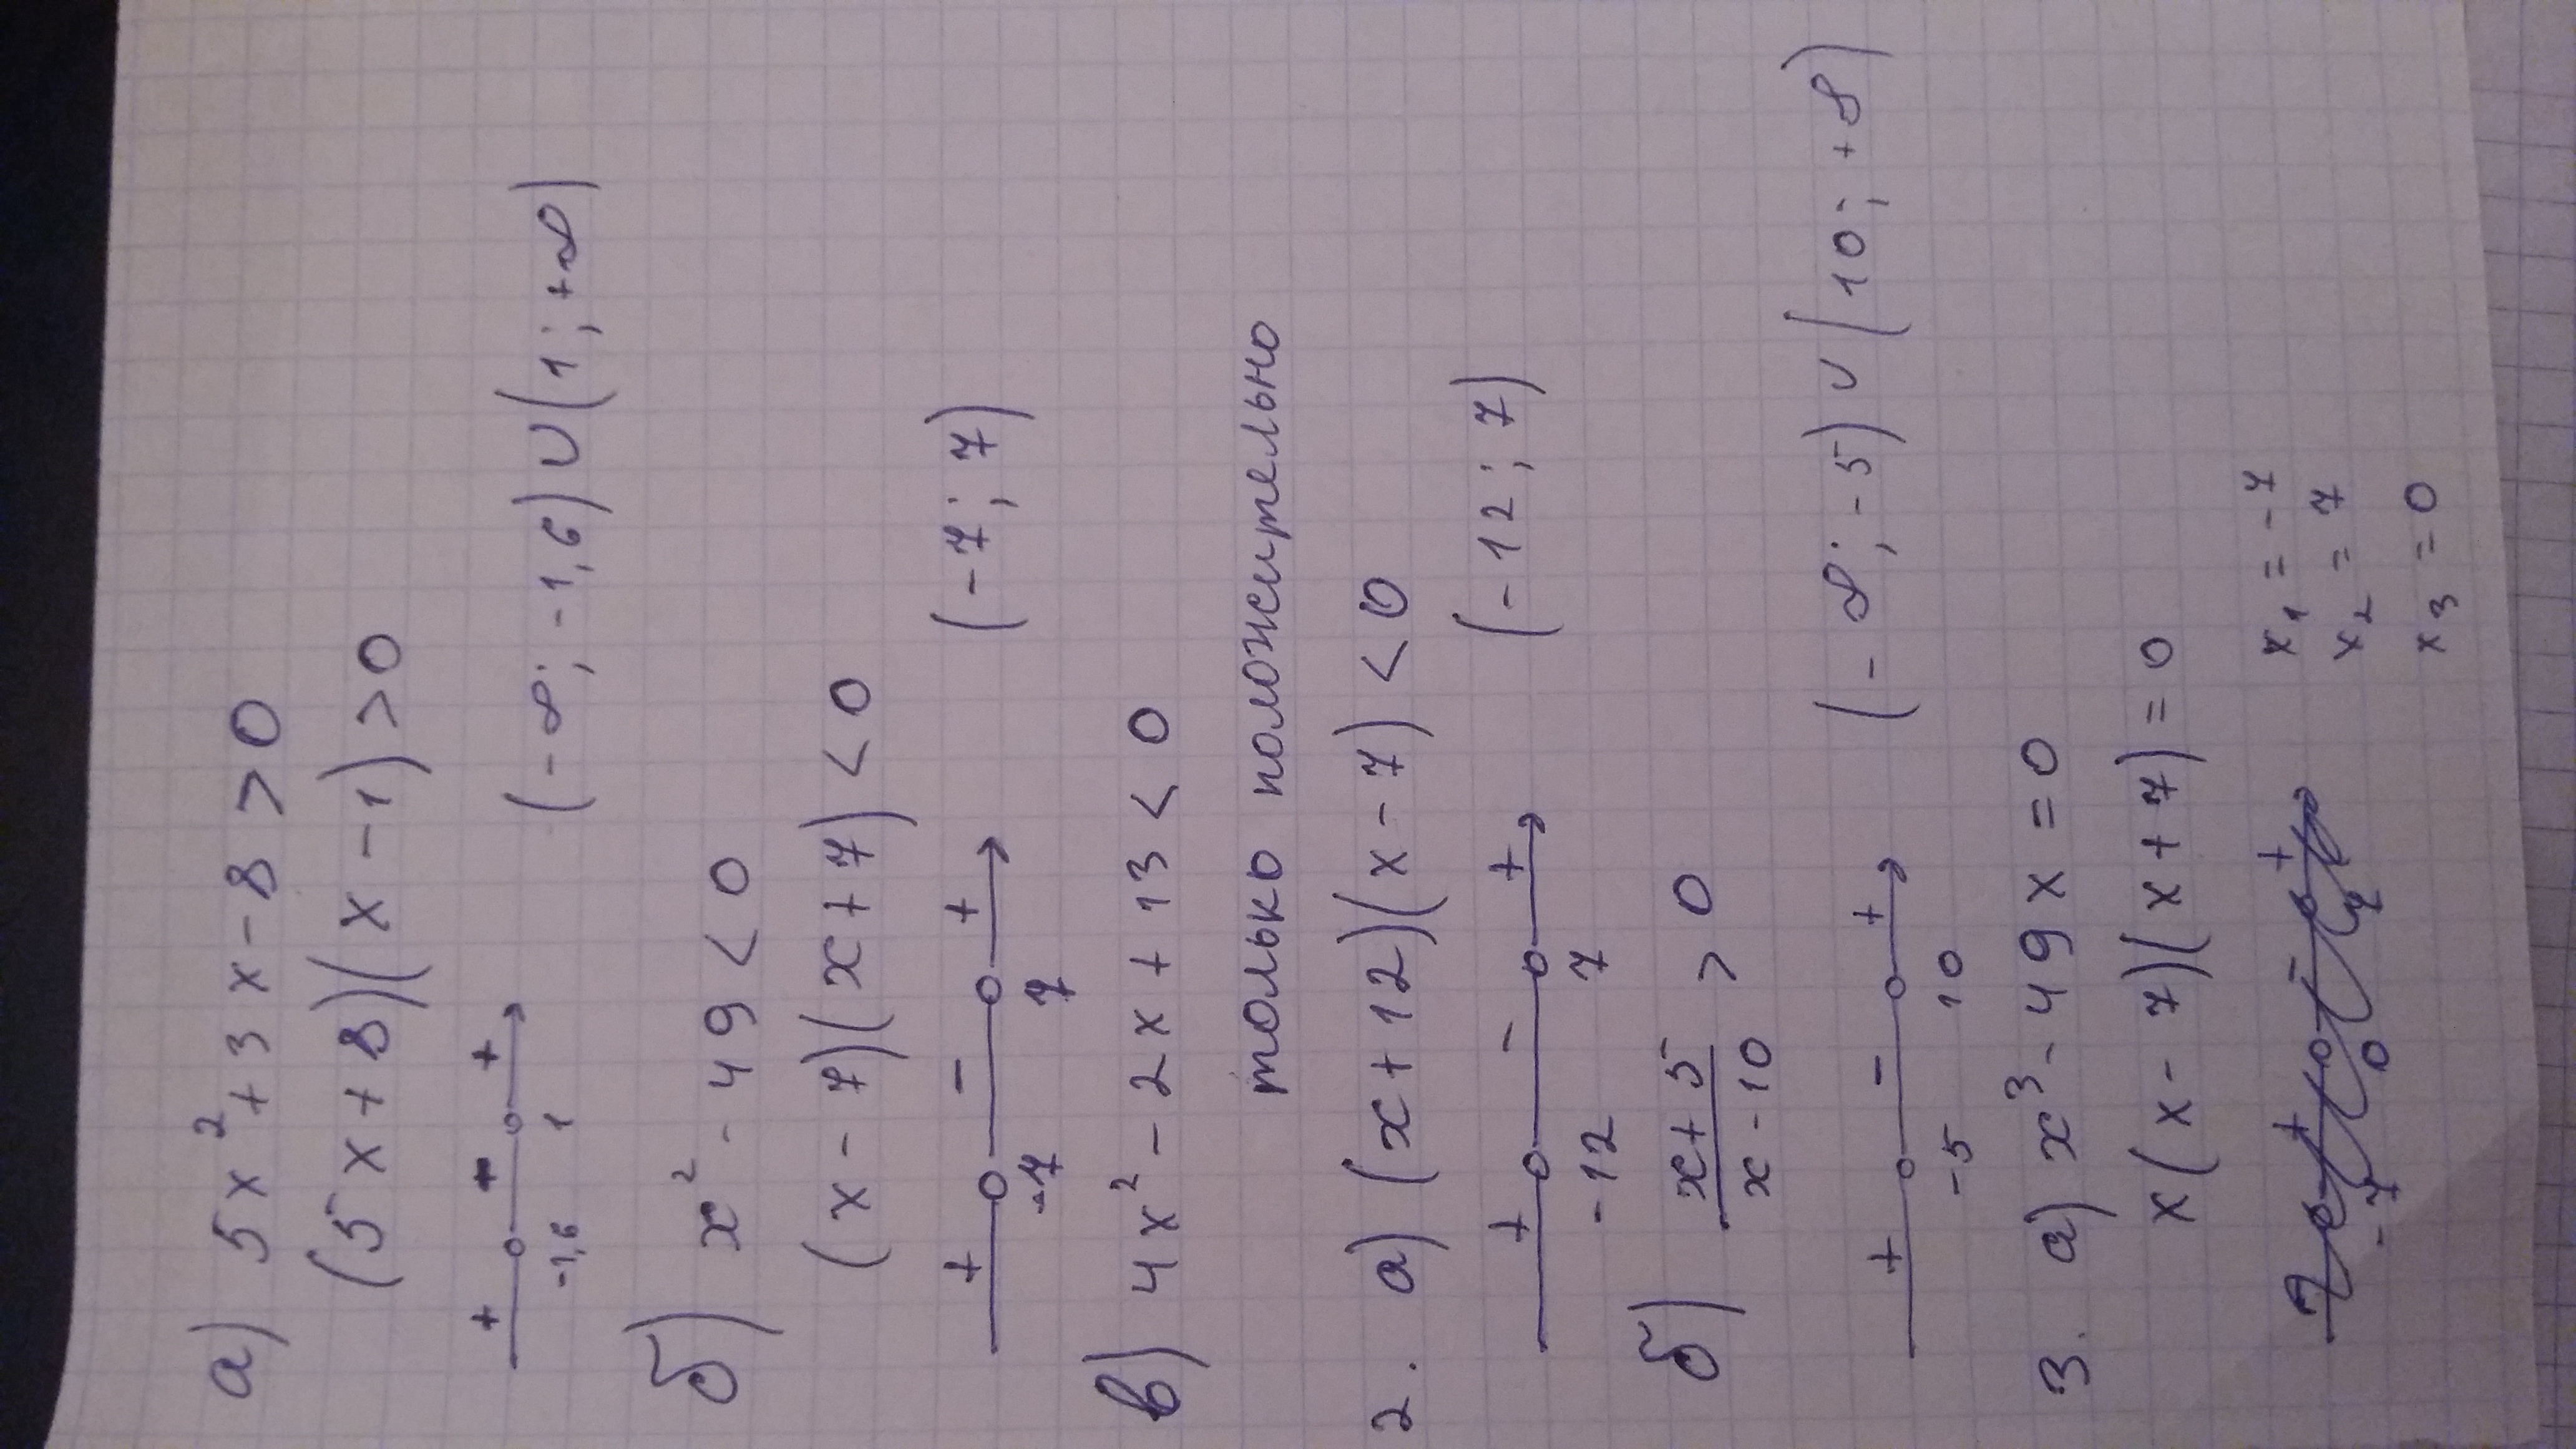 а) 5x² + 3x - 8 > 0
(5x + 8)(x - 1) > 0
+ - +
-1,6 1
(-∞; -1,6) ∪ (1; +∞)
б) x² - 49 < 0
(x - 7)(x + 7) < 0
+ - +
-7 7
(-7; 7)
в) 4x² - 2x + 13 < 0
только положительно
2. а) (x + 12)(x - 7) < 0
+ - +
-12 7
(-12; 7)
б) (x + 5)/(x - 10) > 0
+ - +
-5 10
(-∞; -5) ∪ (10; +∞)
3. а) x³ - 49x = 0
x(x - 7)(x + 7) = 0
x₁ = -7
x₂ = 7
x₃ = 0
+ - +
-7 0 7